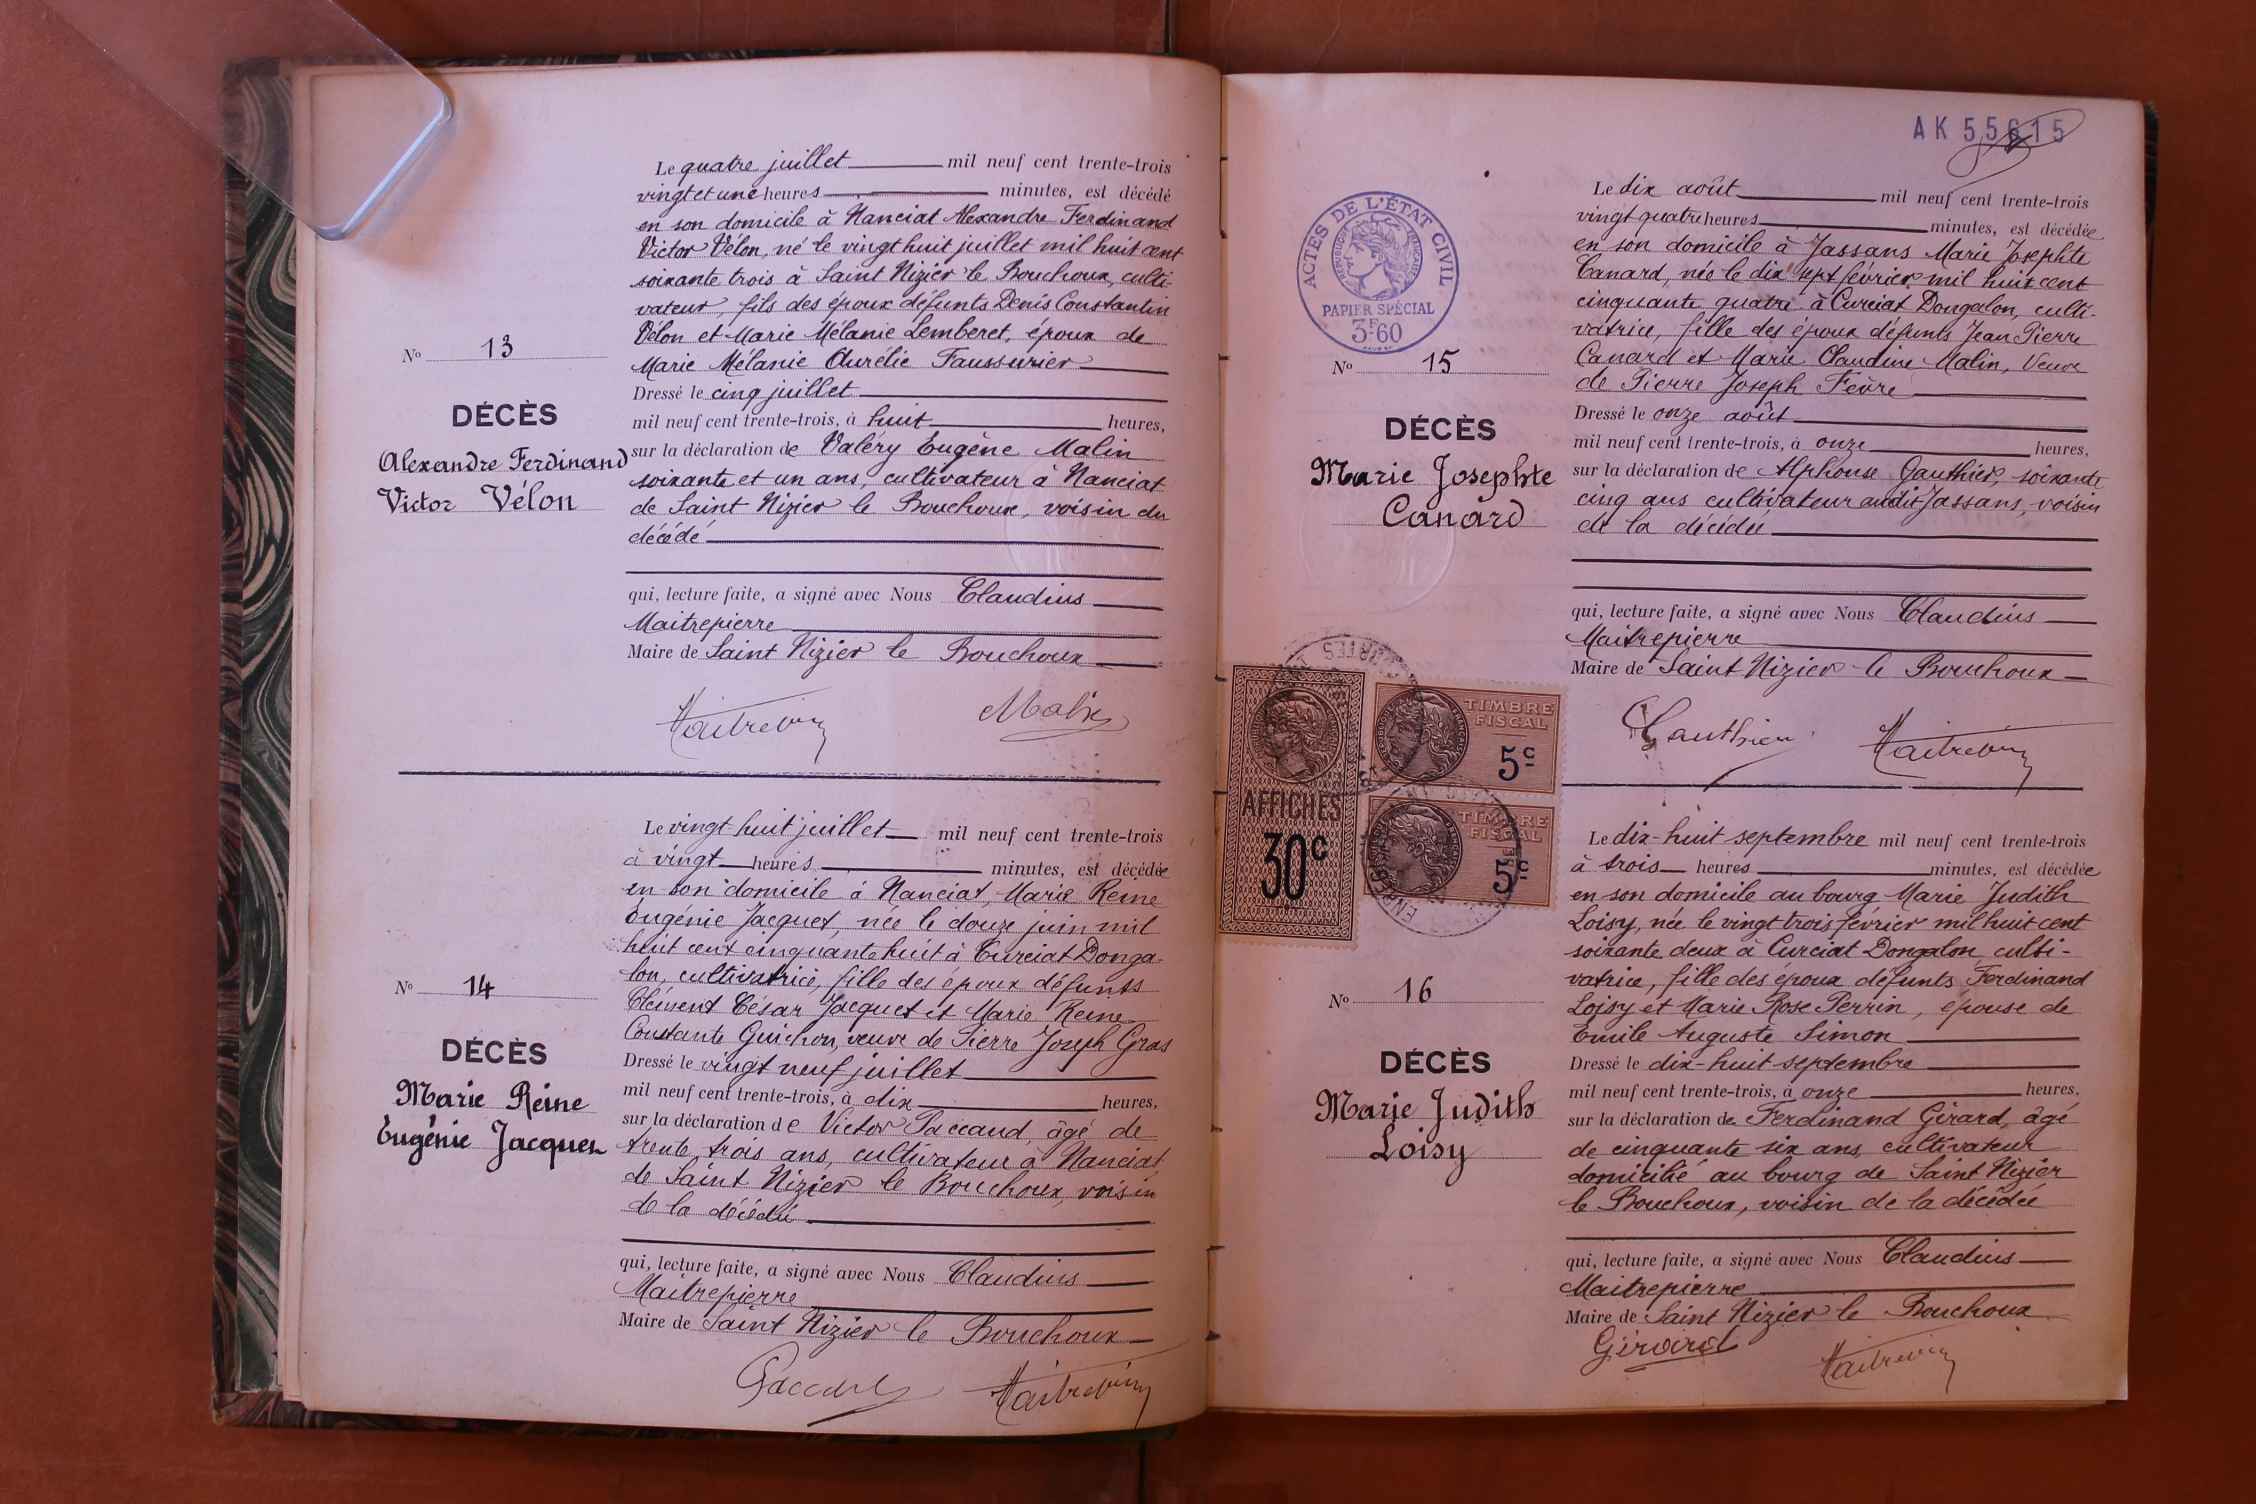 Le quatre juillet mil neuf cent trente-trois
vingt et une heures minutes, est décédé
en son domicile à Nanciat Alexandre Ferdinand
Victor Vélon, né le vingt huit juillet mil huit cent
soixante trois à Saint Nizier le Bouchoux, culti-
vateur, fils des époux défunts Denis Constantin
Vélon et Marie Mélanie Lemberet, époux de
Marie Mélanie Aurélie Faussurier
Dressé le cinq juillet
mil neuf cent trente-trois, à huit heures,
sur la déclaration de Valéry Eugène Malin
soixante et un ans, cultivateur à Nanciat
de Saint Nizier le Bouchoux, voisin du
décédé
qui, lecture faite, a signé avec Nous Claudius
Maitrepierre
Maire de Saint Nizier le Bouchoux
No 13
DÉCÈS
Alexandre Ferdinand
Victor Vélon
Le vingt huit juillet mil neuf cent trente-trois
à vingt heures minutes, est décédée
en son domicile à Nanciat, Marie Reine
Eugénie Jacquet, née le douze juin mil
huit cent cinquante huit à Curciat Donga-
lon, cultivatrice, fille des époux défunts
Clément César Jacquet et Marie Reine
Constante Guichon, veuve de Pierre Joseph Gras
Dressé le vingt neuf juillet
mil neuf cent trente-trois, à dix heures,
sur la déclaration de Victor Paccaud, âgé de
trente trois ans, cultivateur à Nanciat
de Saint Nizier le Bouchoux, voisin
de la décédée
qui, lecture faite, a signé avec Nous Claudius
Maitrepierre
Maire de Saint Nizier le Bouchoux
No 14
DÉCÈS
Marie Reine
Eugénie Jacquet
AK 55615
ACTES DE L'ÉTAT CIVIL
PAPIER SPÉCIAL
3F60
Le dix août mil neuf cent trente-trois
vingt quatre heures minutes, est décédée
en son domicile à Jassans Marie Josephte
Canard, née le dix sept février mil huit cent
cinquante quatre à Curciat Dongalon, culti-
vatrice, fille des époux défunts Jean Pierre
Canard et Marie Claudine Malin, Veuve
de Pierre Joseph Fèvre
Dressé le onze août
mil neuf cent trente-trois, à onze heures,
sur la déclaration de Alphonse Gauthier, soixante
cinq ans cultivateur audit Jassans, voisin
de la décédée
qui, lecture faite, a signé avec Nous Claudius
Maitrepierre
Maire de Saint Nizier le Bouchoux
Gauthier
No 15
DÉCÈS
Marie Josephte
Canard
AFFICHES
30c
TIMBRE
FISCAL
5c
TIMBRE
FISCAL
5c
Le dix-huit septembre mil neuf cent trente-trois
à trois heures minutes, est décédée
en son domicile au bourg Marie Judith
Loisy, née le vingt trois février mil huit cent
soixante deux à Curciat Dongalon, culti-
vatrice, fille des époux défunts Ferdinand
Loisy et Marie Rose Perrin, épouse de
Emile Auguste Simon
Dressé le dix-huit septembre
mil neuf cent trente-trois, à onze heures,
sur la déclaration de Ferdinand Girard, âgé
de cinquante six ans, cultivateur
domicilié au bourg de Saint Nizier
le Bouchoux, voisin de la décédée
qui, lecture faite, a signé avec Nous Claudius
Maitrepierre
Maire de Saint Nizier le Bouchoux
Girard
No 16
DÉCÈS
Marie Judith
Loisy